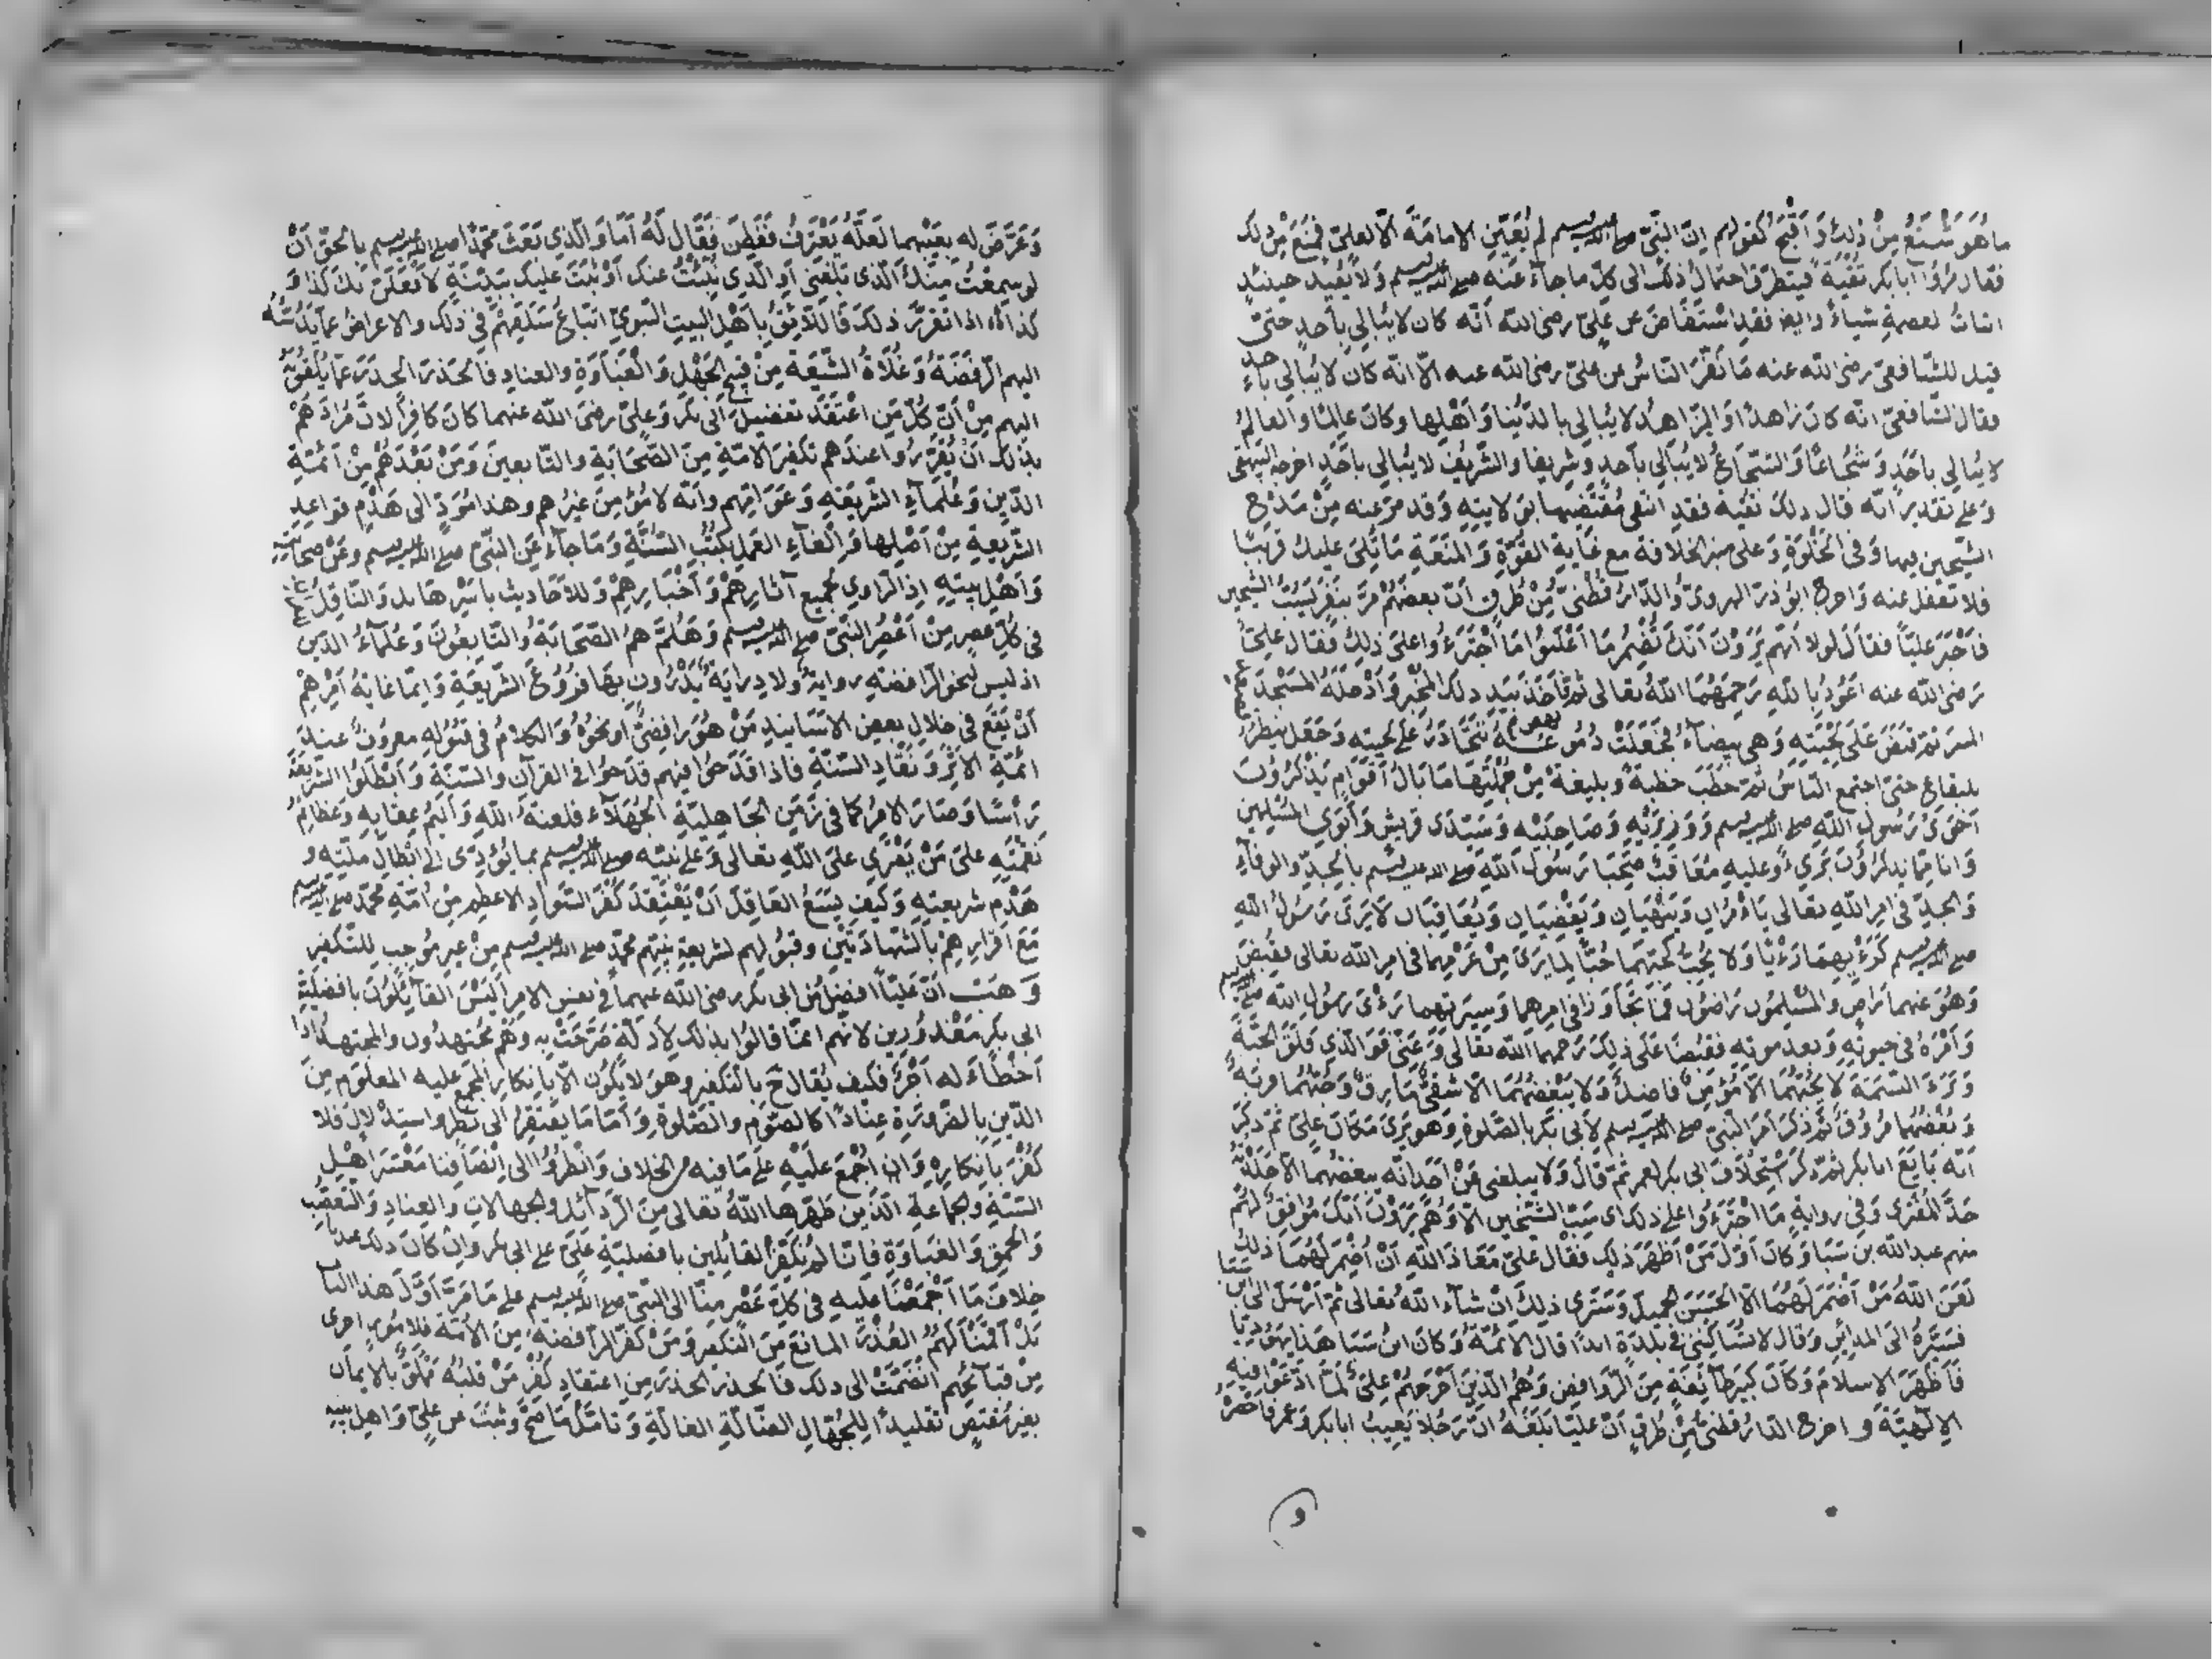 ما هو شنع من ذلك وَاَقْبَحُ كقولهم اِنّ النبيّ صلى الله عليه وسلم لم يُعَيِّنِ الامامَةَ الّا لعليّ فمُنِعَ من ذلك
فقاد رُوُا ابا بكر تقيّة فيتطرّق احتمالُ ذلك الى كلّ ما جاءَ عنه صلى الله عليه وسلم وَلا يُفيد حينئذٍ
اثباتُ لعصمةٍ شياءً وايض فقدِ اسْتفَاضَ عن عليّ رضى الله اَنّه كان لا يُبالى بأحدٍ حتىّ
قيل للشافعىّ رضى الله عنه مَا نَفَّرَ الناسُ عن علىّ رضى الله عنه الّا انّه كان لا يُبالى بأحد
فقال الشافعىّ انّه كان زاهدًا وَالزّاهدُ لا يُبالى بالدّنيا وَاَهْلِها وكان عالمًا والعالمُ
لا يُبالى باحَدٍ وَشُجاعًا وَالشّجاعُ لا يُبالى باحدٍ وَشريفا والشّريفُ لا يُبالى باحدٍ اخرجه البيهقى
وَعلى تقدير اَنّه قال ذلك تقيّة فقدِ انتفى مُقتَضِيها بوِلايتِهِ وَقد مرّ عنه مِنْ مَدْحِ
الشيخين فيها وَفى الخَلْوَةِ وَعلى منبر الخلافة مع غايةِ القُوّةِ وَالمَنَعَةِ مَا تُلِىَ عليك قريبًا
فلا تغفل عنه وَاخرج ابُو ذرّ الهروىّ وَالدّارقُطْنىّ مِنْ طُرقٍ اَنّ بعضَهُمْ مَرّ بنَفَرٍ يَسُبّونَ الشيخين
فاَخْبَرَ عليّا فقال لولا اَنّهم يَرَوْنَ اَنّكَ تُضْمِرُ مَا اَعْلَنوُا مَا اجْتَرَءُوا على ذلك فقال علىّ
رضى الله عنه اعُوذُ بالله رَحِمَهُمَا اللهُ تعالى ثمّ نَهَضَ فاَخَذَ بيَدِ ذلك المُخْبِرِ وَاَدْخَلَهُ المسْجِدَ فَصَعِدَ
المنبر ثمّ قبَضَ عَلَى لِحْيَتِه وَهى بيضآءُ فجَعَلَتْ دُمُوعُهُ تتَحَادَرُ عَلى لحيته وَجَعَل ينظرُ
للبقاعِ حتىّ اجتمع النّاسُ ثمّ خطَبَ خطبةً بليغةً مِنْ جُمْلَتِها مَا بَالُ اَقْوَامٍ يَذْكرُونَ
اَخَوَىْ رَسُولِ اللهِ صلى الله عليه وسلم وَوَزِيرَيْهِ وَصَاحِبَيْه وَسَيّدَىْ قريش وَاَبَوَىِ المسْلِمين
وَانا مِمّا يذكرُونَ بَرِىءٌ وَعليهِ مُعَاقِبٌ صَحِبَا رَسُولَ اللهِ صلى الله عليه وسلم بالجِدّ والوفآءِ
وَالجدّ فى امرِ اللهِ تعالى يَاْمُرَانِ وَيَنْهَيَانِ وَيَقْضيَانِ وَيُعَاقِبَانِ لَا يَرَى رَسُولُ اللهِ
صلى الله عليه وسلم كَرَءْيِهِمَا رَءْيًا وَلا يُحِبُّ كحُبّهِمَا حُبًّا لِمَا يَرَى مِنْ عَزْمِهِما فى امرِ الله تعالى فقُبِضَ
وَهُوَ عنهما رَاضٍ والمسْلِمُون رَاضُون فمَا تَجَاوَزَا فى امرهما وَسيرَتِهِما رَءْىَ رسُولِ اللهِ صلى الله عليه وسلم
وَاَمْرَهُ فى حيوته وَبعد موته فقُبِضَا عَلى ذلِكَ رَحِمَهُما اللهُ تعالى وَعَنّى فَوَ الّذِى فَلَقَ الحَبّةَ
وَبَرَءَ النّسَمَةَ لا يُحِبّهُمَا اِلّا مُؤْمِنٌ فاضِلٌ وَلا يُبْغِضُهُمَا اِلّا شقىٌّ مَارِقٌ وَحُبّهُما قُربَةٌ
وَبُغْضُهُما مُرُوقٌ ثمّ ذكَرَ اَمْرَ النّبىّ صلى الله عليه وسلم لِاَبى بكر بالصّلوة وَهو يَرَى مَكانَ علىّ ثمّ ذكَرَ
اَنّه بَايَعَ ابا بكر ثمّ ذكَرَ اسْتِخْلَافَ ابى بكر لعمر ثمّ قالَ وَلا يبلغنى عَنْ اَحَدٍ انّه يبغضهُما اِلّا جَلَدْتُهُ
حَدّ المُفْتَرِى وَفى رواية مَا اجْتَرَءُوا على ذلك اى سَبّ الشّيْخين الّا وَهُمْ يَرَوْنَ اَنّكَ مُوَافِقٌ لهُمْ
منهم عبد الله بن سَبَا وَكان اَوّلَ مَنْ اَظْهَرَ ذلك فقال علىّ مَعَاذَ اللهِ اَنْ اُضْمِرَ لَهُمَا ذلك
لَعَنَ اللهُ مَنْ اَضْمَرَ لَهُمَا الّا الحَسَنَ الجميلَ وَسَتَرَى ذلِكَ اِنْ شآءَ اللهُ تعالى ثمّ اَرْسَلَ الى ابن سَبَا
فسَيّرَهُ الى المدائنِ وَقال لا تُسَاكِنُنى فى بَلدَةٍ ابدًا قال الائمّةُ وَكان ابنُ سَبَا هذا يهُوديًّا
فاَظْهَرَ الاسلامَ وَكان كَبيرَ طآئفةٍ مِنَ الرّوافِضِ وَهُمُ الّذِينَ اَخْرَجَهُمْ علىّ لمّا ادّعَوْا فيهِ
الالٰهيّةَ و اخرج الدّارقُطْنىّ مِنْ طُرقٍ اَنّ عليّا بَلَغَهُ انّ رَجُلا يَعيبُ ابا بكر وَعمر فاَحْضَرَهُ
و
وَعَرّضَ له بِعَيْبِهِما لَعَلّهُ يَعْتَرِفُ فَفَطِنَ فَقَال لَهُ اَمَا وَالّذِى بَعَثَ مُحَمّدًا صلى الله عليه وسلم بالحقّ اَنْ
لو سمِعْتُ مِنكَ الّذى بَلَغَنى اَوِ الّذى نُبّئتُ عنكَ اَوْ ثبَتَ عليك ببَيّنةٍ لَاَفْعَلَنّ بكَ كَذا وَ
كذا اِذا تقرّرَ ذلكَ فَاللّائقُ باَهْلِ البيتِ النّبوىّ اتّباعُ سَلَفِهِمْ فى ذلك والاعراضُ عمّا يُوشِيهِ
اليهم الرّفَضَةُ وَغُلَاةُ الشّيعَةِ مِنْ قبيح الجَهْلِ وَالْغَبَاوَةِ والعنادِ فَالحَذَرَ الحذَرَ عمّا يُلقُونَهُ
اليهم مِنْ اَنّ كُلّ مَنِ اعْتَقَدَ تفضيلَ اَبى بكَر وَعلىّ رضىَ الله عنهما كانَ كافِرًا لِانّ مُرَادَهُمْ
بذلك اَنْ يُقَرّرُوا عندَهم تكفيرَ الامّةِ مِنَ الصّحَابَةِ والتّابعينَ وَمَنْ بَعْدَهُمْ مِنْ اَئمّةِ
الدّينِ وَعُلَمآءِ الشّريعةِ وَعَوَامّهم وانّه لا مُؤمِنَ غيرُهم وهذا مُؤدٍّ الى هَدْمِ قواعدِ
الشّريعةِ مِنْ اَصْلِها وَاِلْغآءِ العَمَلِ بكُتُبِ السّنّةِ وَمَا جآءَ عَنِ النّبىّ صلى الله عليه وسلم وَعَنْ صحابتِه
وَاَهْلِ بيتِهِ اِذِ الرّاوى لجميع آثارِهِمْ وَاَخْبَارِهِمْ وَللاَحاديث باَسْرِها بل وَالنّاقِلُ للقرآن
فى كُلّ عصرٍ مِنْ اَعْصُرِ النّبىّ صلى الله عليه وسلم وَهَلُمّ هُمُ الصّحَابَةُ والتّابعُونَ وَعُلمآءُ الدّينِ
اذ ليس لنحو الرّافضة روايةٌ ولا دِرايَةٌ يَدْرُون بها فرُوعَ الشّريعةِ وَانّما غايَةُ اَمْرِهِمْ
اَنْ يَقَعَ فى خلالِ بعضِ الاسَانيدِ مَنْ هُوَ رافضىٌّ اَوْ نحوُهُ وَالكلامُ فى قبُولِهِ معروفٌ عندَ
ائمّةِ الاَثرِ وَنُقّادِ السّنّةِ فاذا قدَحُوا فيهم قدَحُوا فى القرآنِ والسّنّةِ وَاَبْطَلُوا الشّريعَةَ
رَأْسًا وَصَارَ الامرُ كما فى زَمَنِ الجَاهِليّةِ الجُهَلآءِ فلَعنةُ اللهِ وَاَليمُ عِقابِهِ وَعظائمُ
نِقْمَتِهِ على مَنْ يَفْتَرِى على اللهِ تعالى وَعلى نبيّه صلى الله عليه وسلم بما يُؤدّى الى ابْطالِ ملّتِه و
هَدْمِ شريعتِهِ وَكَيْفَ يسَعُ العَاقِلَ اَنْ يَعْتَقِدَ كُفْرَ السّوَادِ الاعظمِ مِنْ اُمّةِ مُحمّد صلى الله عليه وسلم
مَعَ اقرارِهِمْ بالشّهَادَتَيْنِ وَقبُولِهم لشريعةِ نبيّهم محمّدٍ صلى الله عليه وسلم مِنْ غير مُوجبٍ للتّكفير
وَهَبْ اَنّ عَليّا افضَلُ مِن ابى بكر رضى الله عنهما فى نفسِ الامرِ اَلَيْسَ القآئلُونَ باَفضليّةِ
ابى بكر مَعْذُورِينَ لانّهم انّما قالُوا بذلك لِاَدِلّةٍ صَرّحَتْ بِه وَهُمْ مُجْتهِدُون والمجتهدُ اذا
اَخْطَاءَ له اَجْرٌ فكَيفَ يُقال ح بالتكفير وهوَ لا يَكُونُ الّا باِنكارِ المُجْمَعِ عليه المعلومِ مِنَ
الدّينِ بالضّرُورَةِ عِنادًا كالصّومِ والصّلوة وَاَمّا مَا يَفْتَقِرُ الى نَظَرٍ واستدْلالٍ فلا
كُفْرَ باِنكارِه وَاِنْ اُجْمِعَ عَلَيْهِ عَلى مَا فيه من الخلاف وَانْظُرُوا الى اِنْصَافِنا مَعْشَرَ اهْلِ
السّنّةِ وَالجماعةِ الّذين طَهّرَها اللهُ تعالى مِنَ الرّذآئل والجهالاتِ والعِنادِ وَالتّعَصّبِ
وَالحُمْقِ وَالغَبَاوَةِ فاِنّا لم نُكَفّرِ القائلين باَفضليّةِ علىّ على ابى بكر وَان كان ذلك عندنا
خِلافَ مَا اَجْمَعْنا عليه فى كلّ عَصْرٍ مِنّا الى النّبىّ صلى الله عليه وسلم على مَا مَرّ اَوّلَ هذا البا
بَلْ اَقَمْنَا لَهُمُ العُذْرَ المانعَ مِنَ التّكفيرِ وَمَنْ كَفّرَ الرّافضةَ مِنَ الاُمّةِ فلامُورٍ اُخرى
مِنْ قبآئحِهم انْضَمّتْ الى ذلك فَالحذرَ الحذرَ مِنِ اعتقادِ كُفْرِ مَنْ قلبُهُ مَملوٌّ بالايمان
بغيرِ مُقتضٍ تقليدًا لِلجُهّالِ الضّالّةِ الغالّةِ وَتاَمّلْ مَا صَحّ وَثبَتَ عن علىّ وَاهل بيته